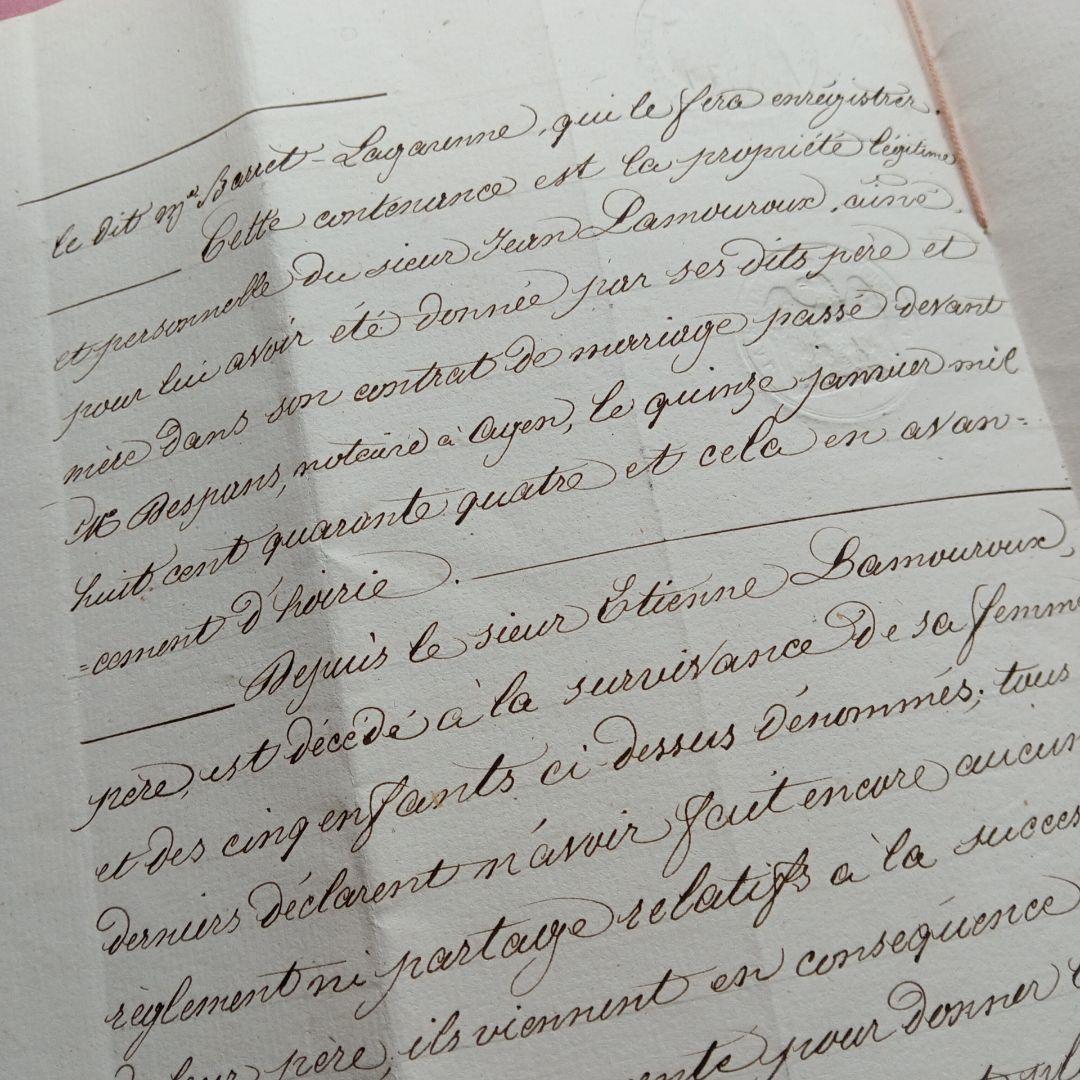 le dit Me Barret-Lagarenne, qui le fera enrégistrer.
Cette contenance est la propriété légitime
et personnelle du sieur Jean Lamouroux, ainé,
pour lui avoir été donnée par ses dits père et
mère dans son contrat de marriage passé devant
Me Despans, notaire à Agen, le quinze janvier mil
huit cent quarante quatre et cela en avan=
=cement d'hoirie.
Depuis le sieur Etienne Lamouroux,
père, est décédé à la survivance de sa femme
et des cinq enfants ci dessus dénommés; tous
derniers déclarent n'avoir fait encore aucun
règlement ni partage relatifs à la succes
leur père, ils viennent en conséquence
pour donner